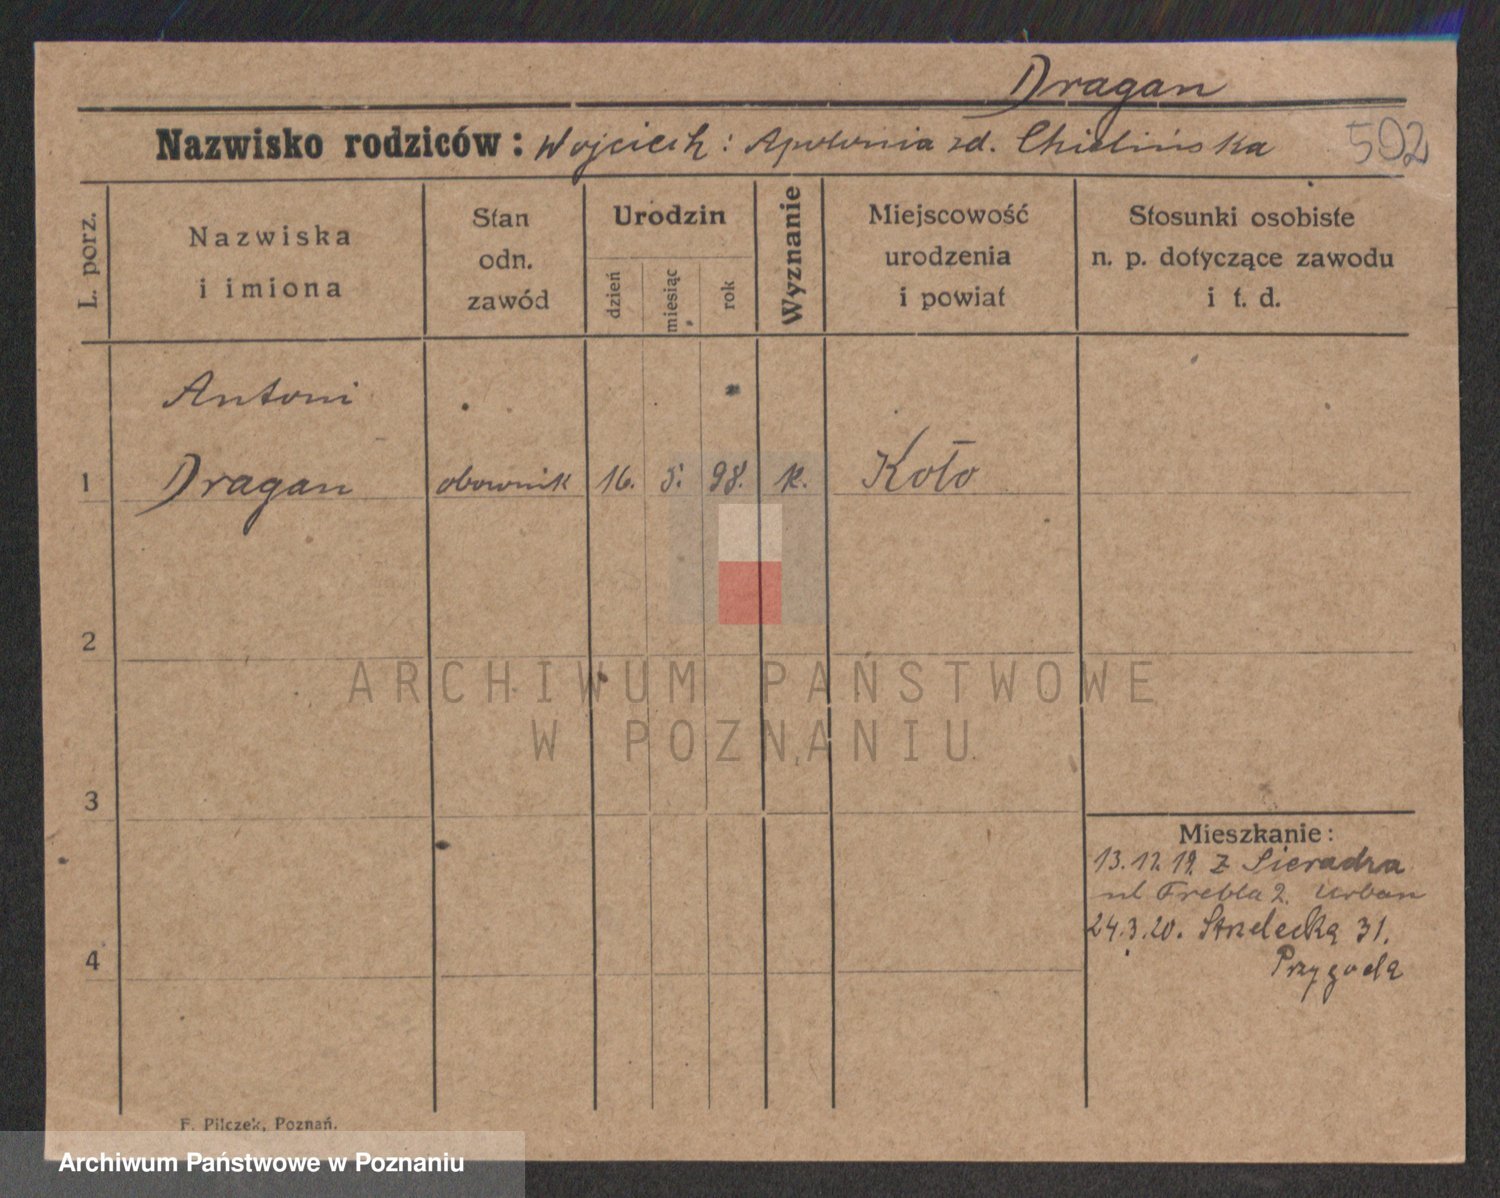 Dragan
Nazwisko rodziców: Wojciech: Apolonia zd. Chielińska 502
L. porz.
Nazwiska
i imiona
Stan
odn.
zawód
Urodzin
dzień
miesiąc
rok
Wyznanie
Miejscowość
urodzenia
i powiat
Stosunki osobiste
n. p. dotyczące zawodu
i t. d.
Antoni
1 Dragan obownik 16. 5. 98. k. Koło
2
ARCHIWUM PAŃSTWOWE
W POZNANIU
3
Mieszkanie:
13.12.19. z Sieradza
ul Frebla 2. Urban
24.3.20. Strzelecka 31.
Przygoda
4
F. Pilczek, Poznań.
Archiwum Państwowe w Poznaniu